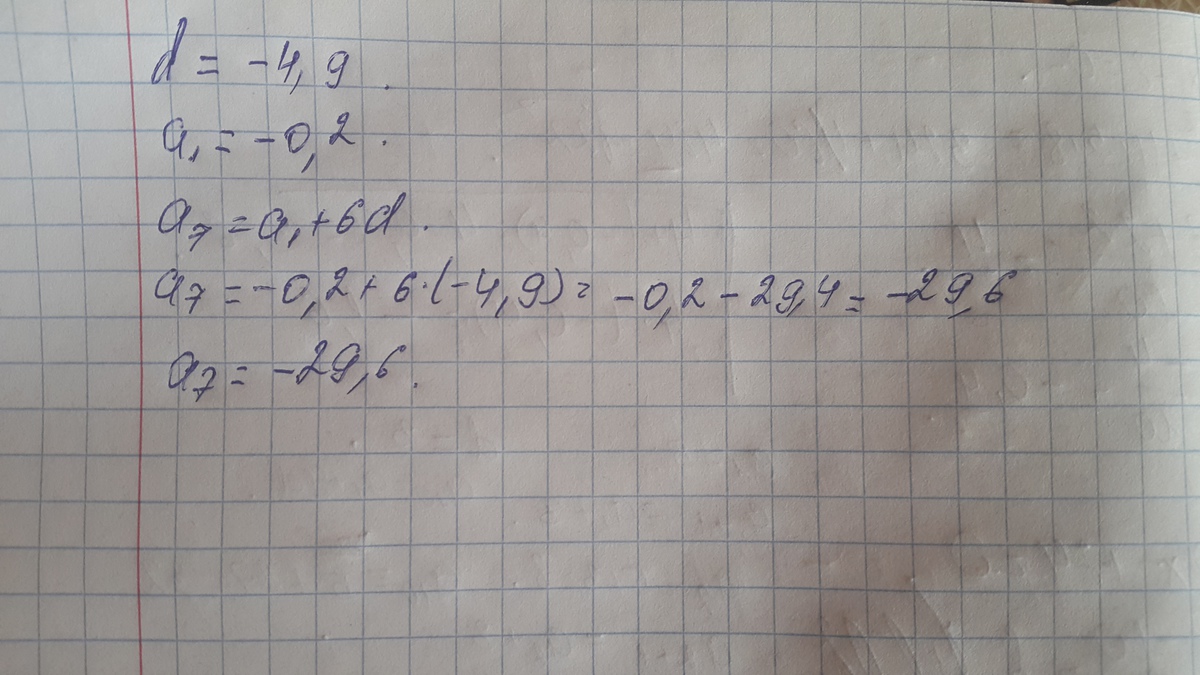 d = -4,9.
a₁ = -0,2.
a₇ = a₁ + 6d.
a₇ = -0,2 + 6·(-4,9) = -0,2 - 29,4 = -29,6
a₇ = -29,6.